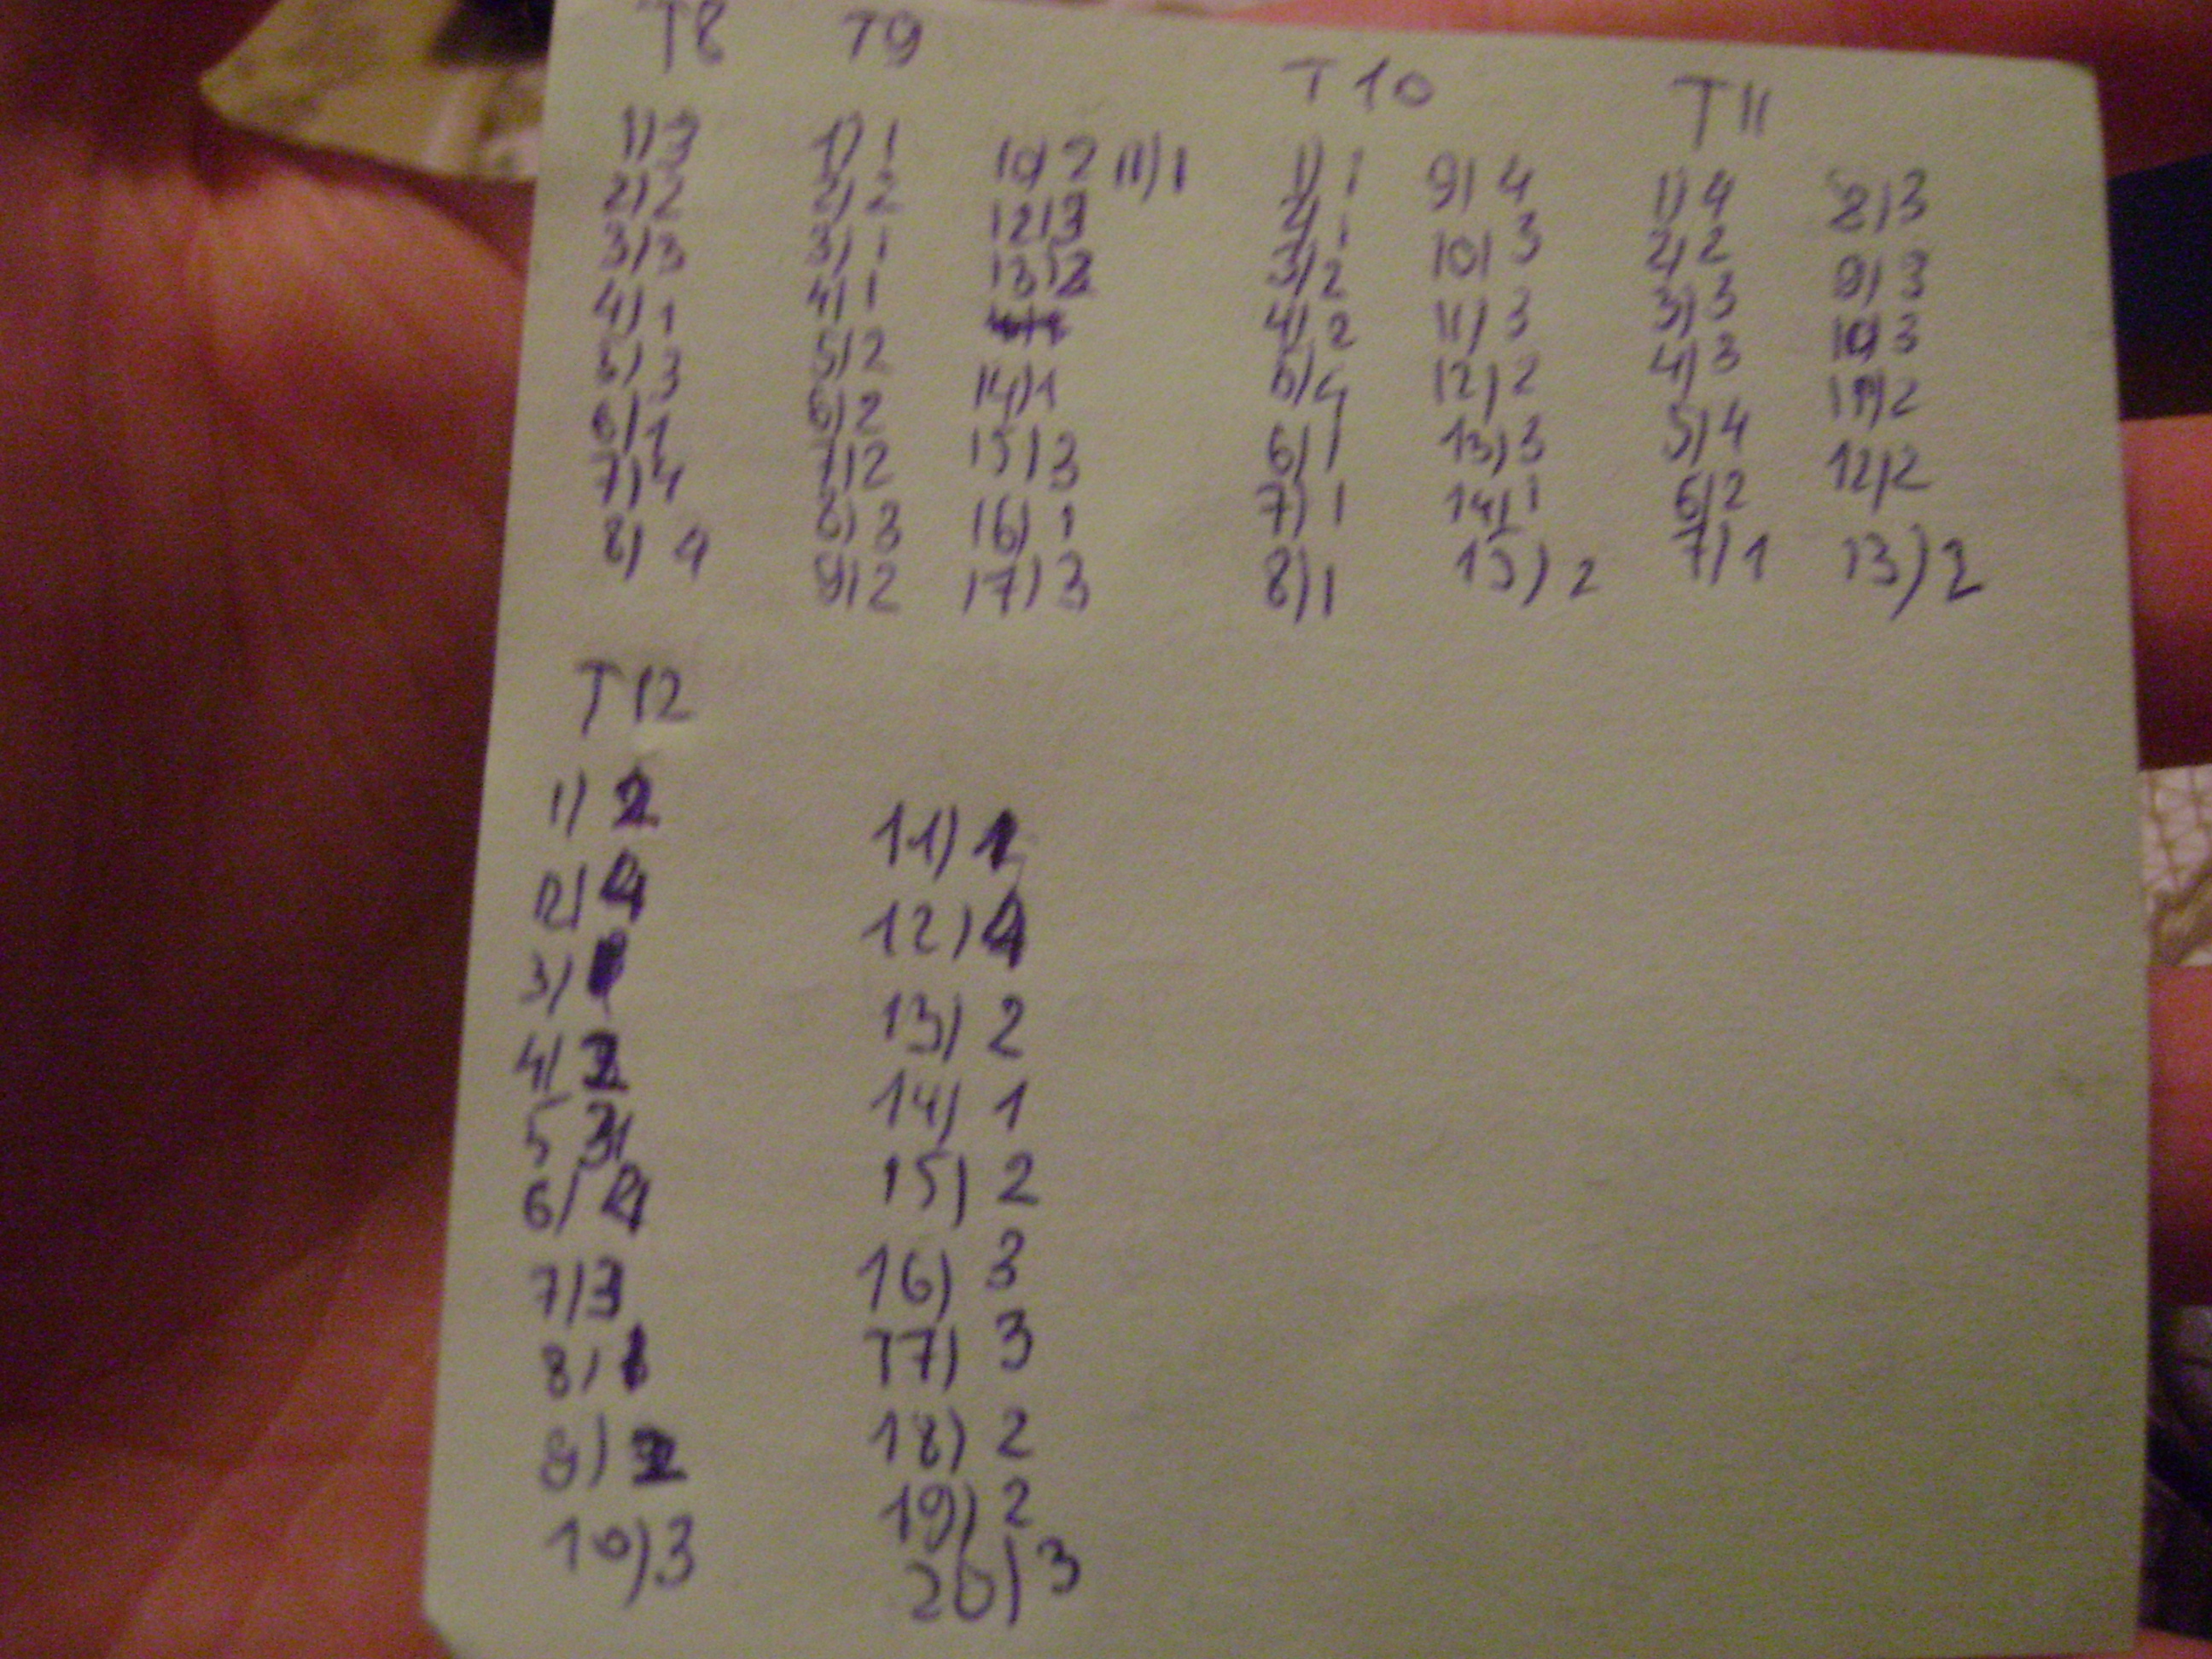 T8
1) 3
2) 2
3) 3
4) 1
5) 3
6) 1
7) 4
8) 4
T9
1) 1
2) 2
3) 1
4) 1
5) 2
6) 2
7) 2
8) 3
9) 2
10) 2 11) 1
12) 3
13) 2
14) 1
15) 3
16) 1
17) 3
T10
1) 1
2) 1
3) 2
4) 2
5) 4
6) 1
7) 1
8) 1
9) 4
10) 3
11) 3
12) 2
13) 3
14) 1
15) 2
T11
1) 4
2) 2
3) 3
4) 3
5) 4
6) 2
7) 1
8) 3
9) 3
10) 3
11) 2
12) 2
13) 2
T12
1) 2
2) 4
3) 1
4) 2
5 3
6) 4
7) 3
8) 1
9) 2
10) 3
11) 1
12) 4
13) 2
14) 1
15) 2
16) 3
17) 3
18) 2
19) 2
20) 3